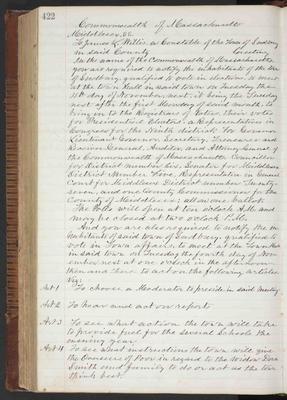 422
Commonwealth of Massachusetts
Middlesex, SS.
To James L. Willis a Constable of the Town of Sudbury
in said County Greeting
In the name of the Commonwealth of Massachusetts
you are required to notify the inhabitants of the Town
of Sudbury, qualified to vote in elections, to meet
at the Town Hall in said town on Tuesday the
4th day of November, next, it being the Tuesday
next after the first Monday of said month, to
bring in to the Registrars of Votes, their votes
for Presidential Electors, a Representative in
Congress for the Ninth district for Governor
Lieutenant Governor, Secretary, Treasurer and
Receiver General, Auditor, and Attorney General of
the Commonwealth of Massachusetts Councillor
for district number Six, Senator for Middlesex
District Number Five, Representative in General
Court for Middlesex District number Twenty-
seven, and one County Commissioner for the
County of Middlesex; all on one ballot.
The Polls will open at ten o'clock A.M. and
may be closed at two o'clock P.M.
And you are also required to notify the in-
habitants of said town of Sudbury, qualified to
vote in Town affairs, to meet at the Town Hall
in said town on Tuesday the fourth day of Nov-
ember next at one o'clock in the afternoon
then and there to act on the following articles
Viz:
Art 1 To choose a Moderator to preside in said meeting
Art 2 To hear and act on reports
Art 3 To see what action the town will take
to provide fuel for the several Schools the
ensuing year
Art 4 To see what instructions the town will give
the Overseers of Poor in regard to the Widow Dora
Smith and family to do or act as the town
think best.